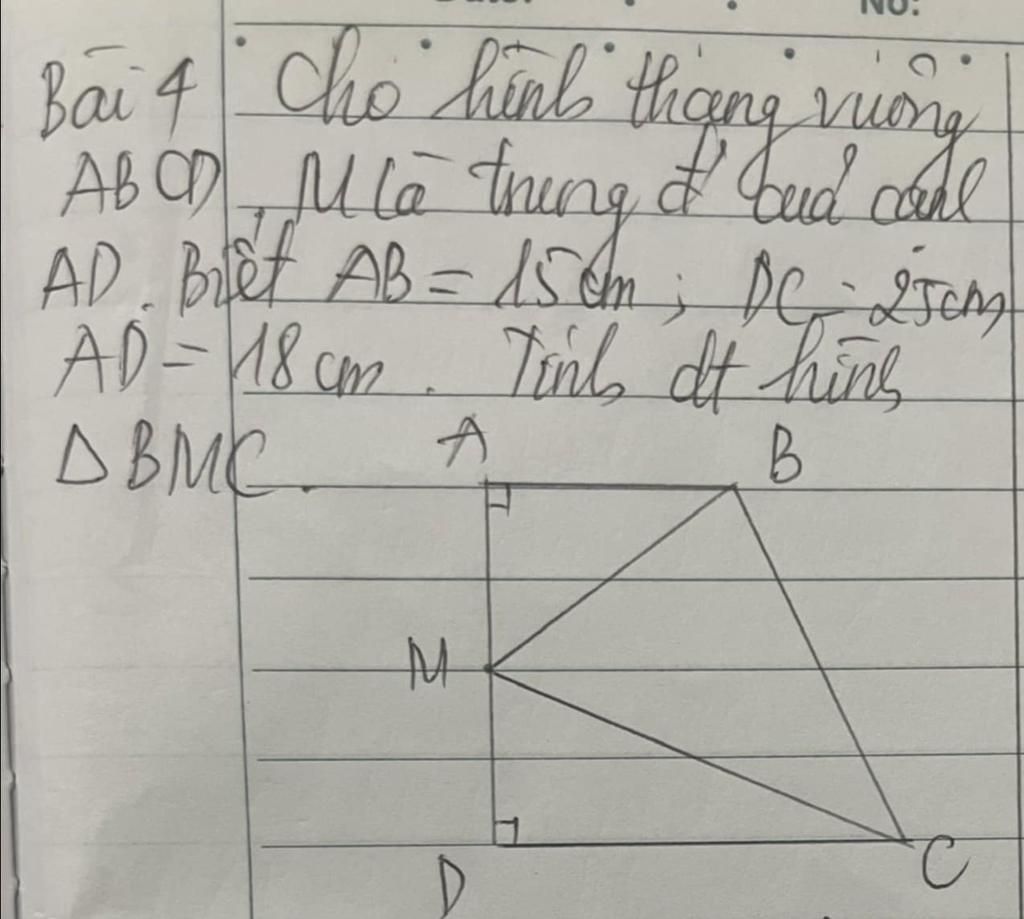 No:
Bài 4 Cho hình thang vuông
ABCD, M là trung đ' của cạnh
AD. Biết AB = 15cm; DC = 25cm
AD = 18cm. Tính dt hình
Δ BMC.
A B
M
D C